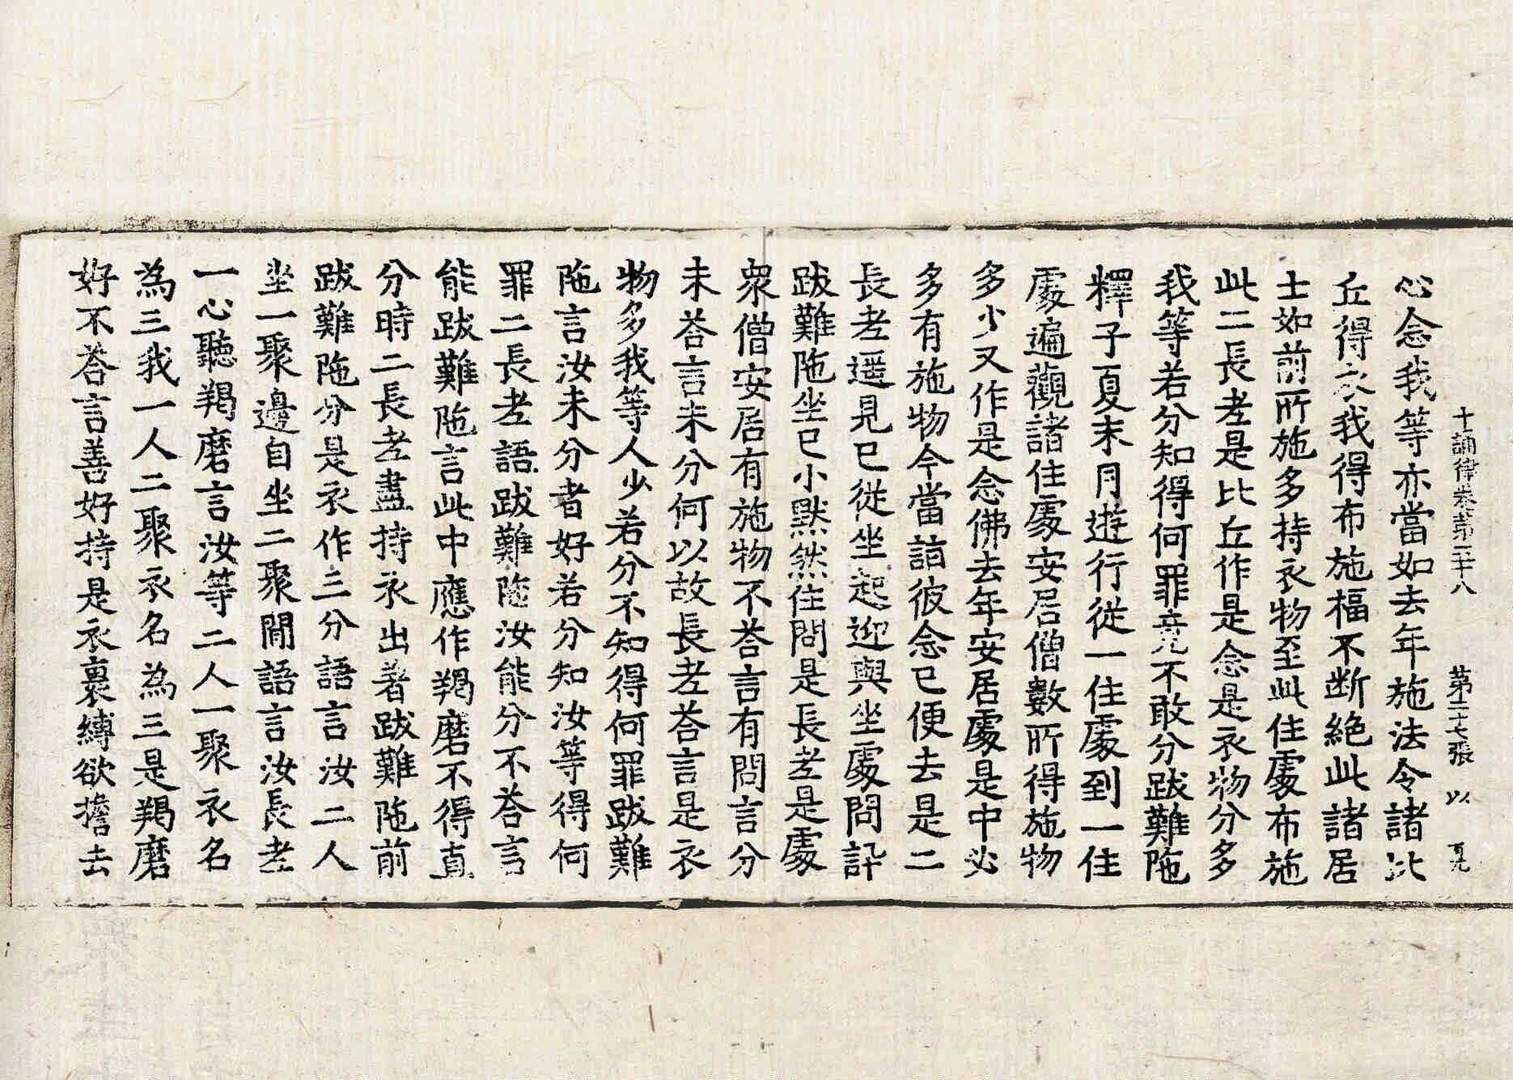 十誦律卷第二十八 第二十七張 以
心念我等亦當如去年施法令諸比
丘得衣我得布施福不断絶此諸居
士如前所施多持衣物至此住處布施
此二長老是比丘作是念是衣物分多
我等若分知得何罪竟不敢分跋難陁
釋子夏末月遊行從一住處到一住
處遍觀諸住處安居僧數所得施物
多少又作是念佛去年安居處是中必
多有施物今當詣彼念已便去是二
長老遥見已從坐起迎與坐處問訊
跋難陁坐已小默然住問是長老是處
衆僧安居有施物不荅言有問言分
未荅言未分何以故長老荅言是衣
物多我等人少若分不知得何罪跋難
陁言汝未分者好若分知汝等得何
罪二長老語跋難陁汝能分不荅言
能跋難陁言此中應作羯磨不得直
分時二長老盡持衣出著跋難陁前
跋難陁分是衣作三分語言汝二人
坐一聚邊自坐二聚閒語言汝長老
一心聽羯磨言汝等二人一聚衣名
為三我一人二聚衣名為三是羯磨
好不荅言善好持是衣裹縛欲擔去